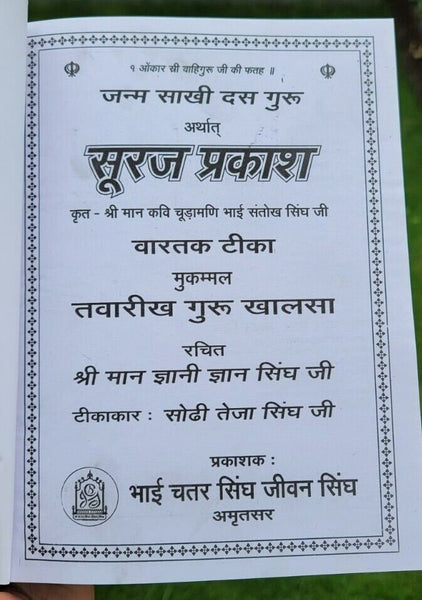 १ ओंकार स्री वाहिगुरू जी की फतह ॥
जन्म साखी दस गुरू
अर्थात्
सूरज प्रकाश
कृत - श्री मान कवि चूड़ामणि भाई संतोख सिंघ जी
वारतक टीका
मुकम्मल
तवारीख गुरू खालसा
रचित
श्री मान ज्ञानी ज्ञान सिंघ जी
टीकाकार : सोढी तेजा सिंघ जी
प्रकाशक :
भाई चतर सिंघ जीवन सिंघ
अमृतसर